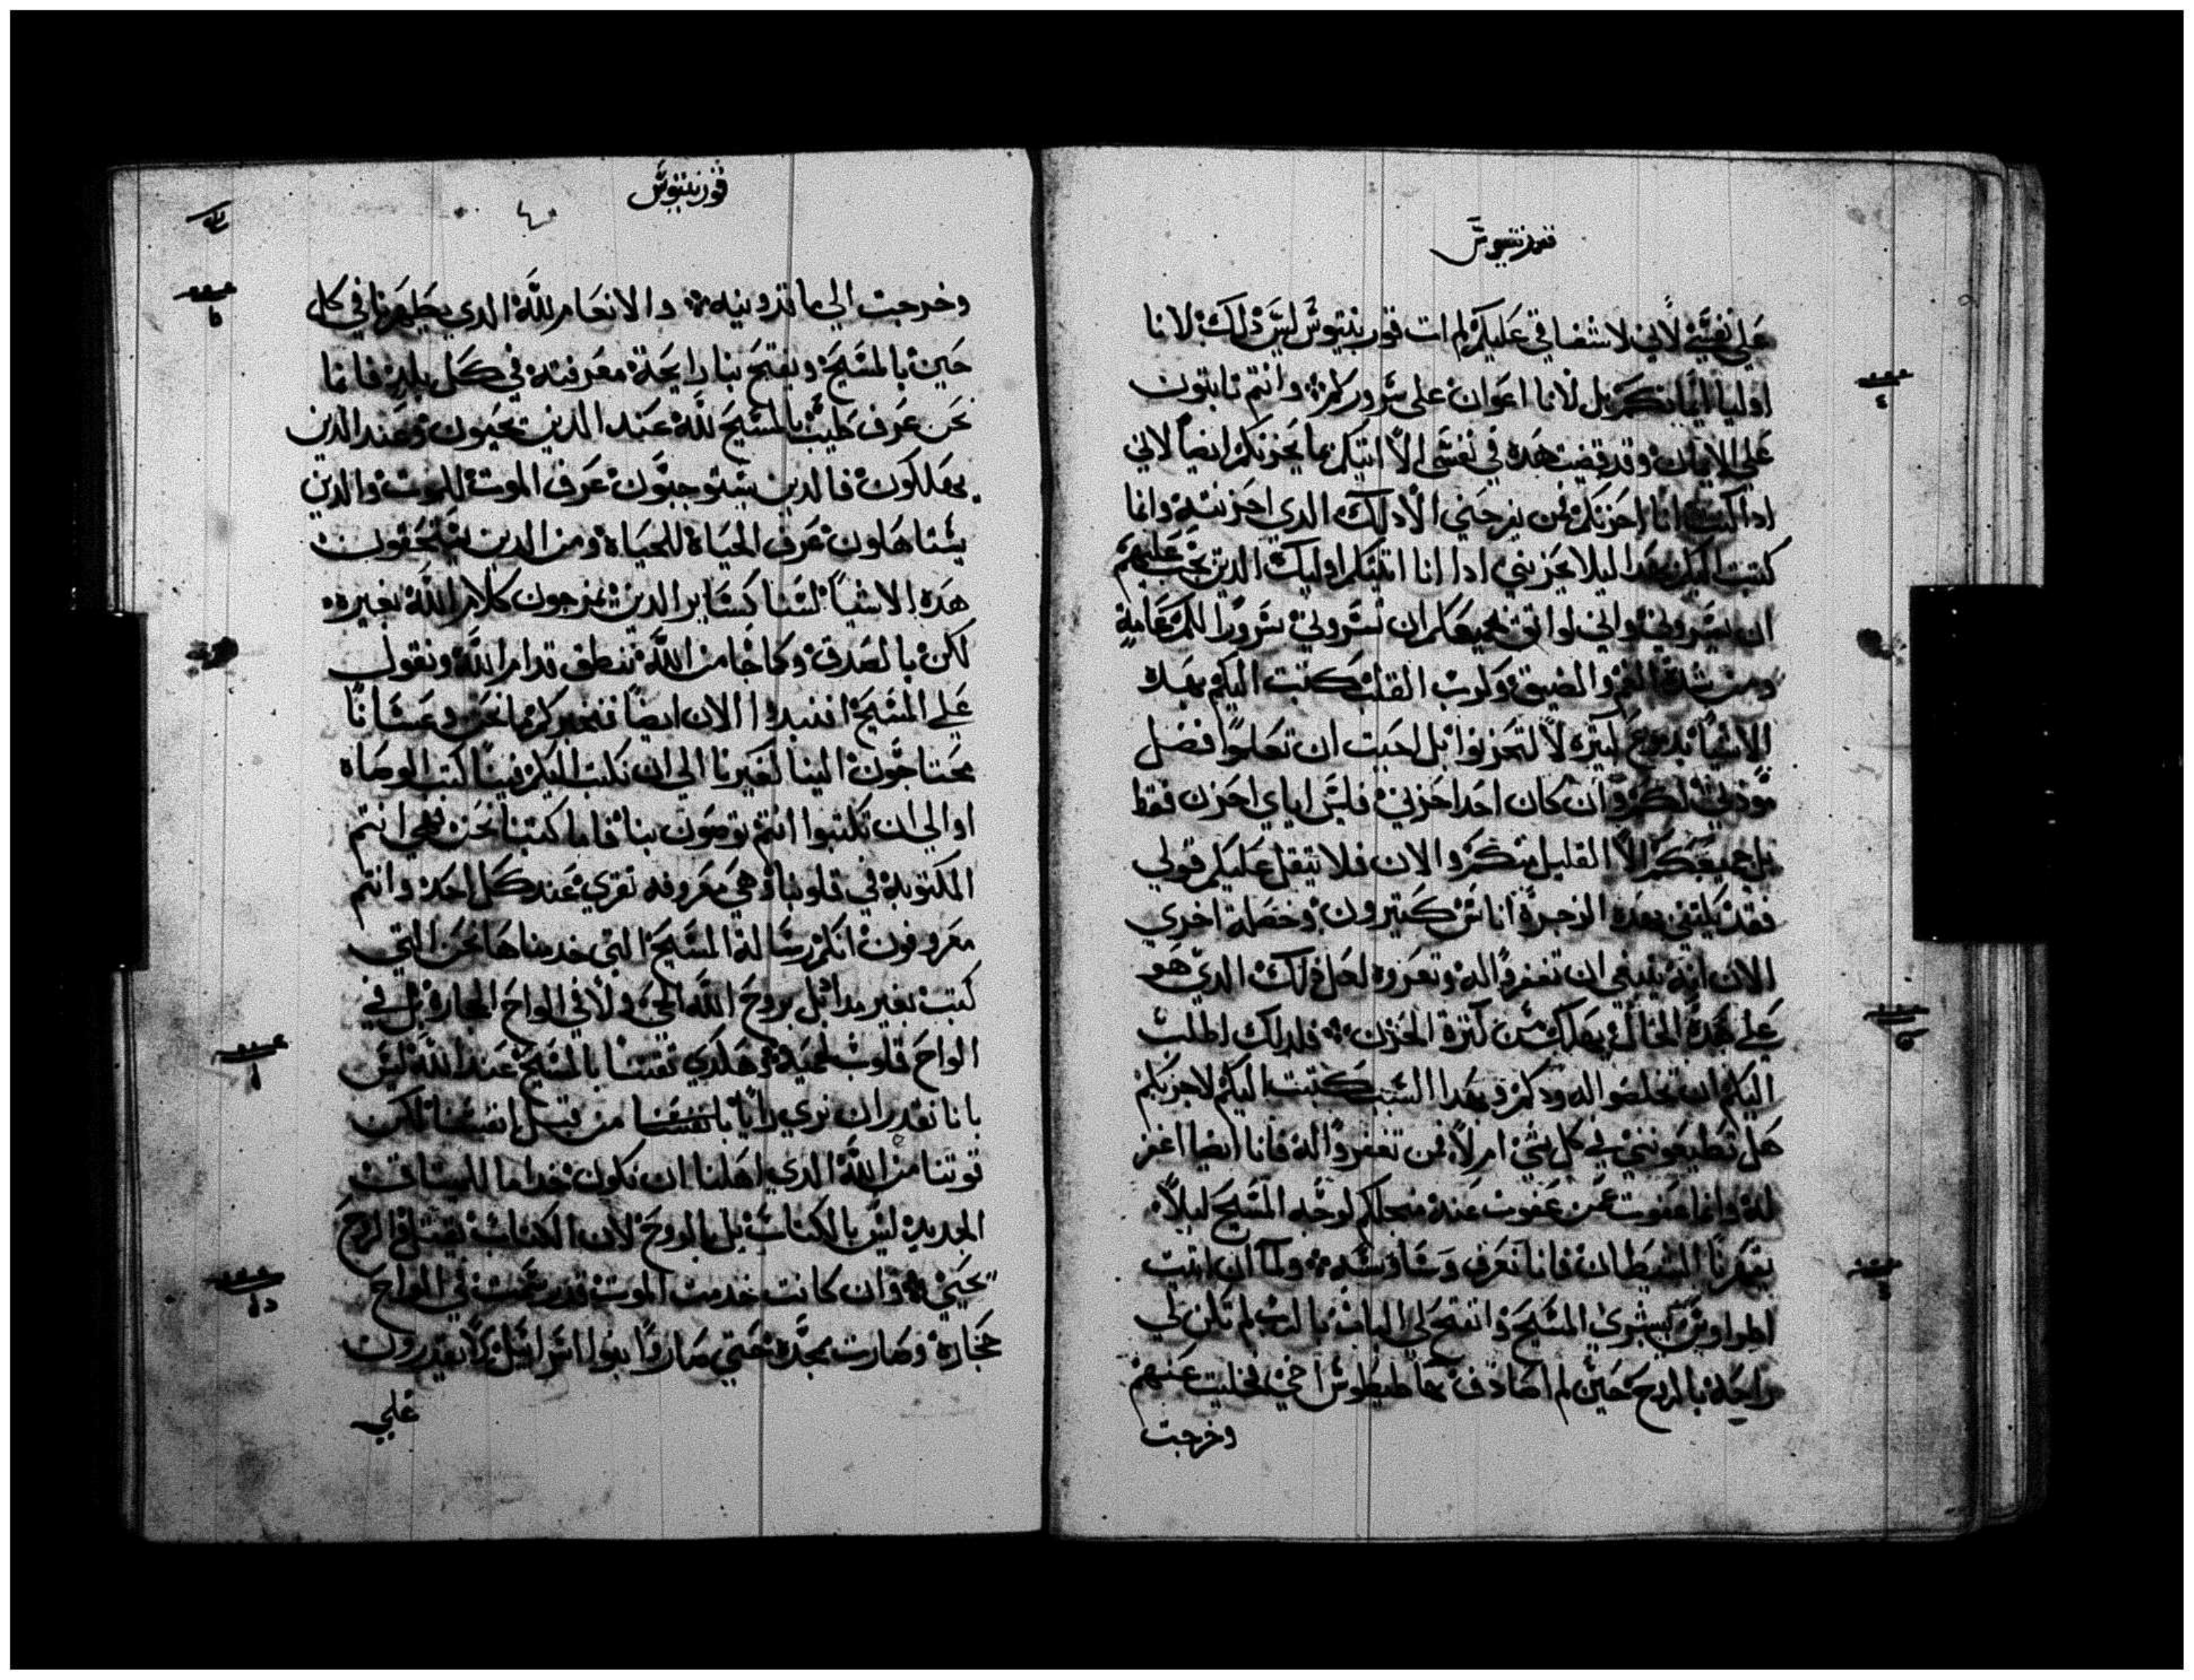 قورنتيوس
على نفسي لاني لاشفاقي عليكم لم ات قورنتيوس ليس ذلك لانا
اوليا ايمانكم بل لانا اعوان على سروركم وانتم تابتون
على الايمان وقد قضيت هده في نفسى الا اتيكم بما يحزنكم ايضا لاني
ادا كنت انا احزنكم فمن يفرحني الا دلك الدي احزنته وانما
كتبت اليكم بهدا ليلا يحزنني ادا انا اتيتكم اوليك الدين يجب عليهم
ان يسروني واني لواتق بجميعكم ان تسروني سرورا لكم عامه
ومن شدة الغم والضيق وكرب القلب كتبت اليكم بهده
الاشيا بدموع كتيره لا لتحزنوا بل احببت ان تعلموا فضل
مودتي لكم وان كان احد احزني فليس اياي احزن فقط
بل جميعكم الا القليل منكم والان فلا تتقل عليكم قولي
فقد يكتفي بهده الزجرة اناس كتيرون وخصلة اخري
الان انه ينبغي ان تغفروا له وتعزوه لعل دلك الدي هو
على هده الحال يهلك من كترة الحزن فلدلك اطلب
اليكم ان تخلصوا له ودكم وبهدا السبب كتبت اليكم لاجربكم
هل تطيعونني في كل شي ام لا فمن تغفروا له فانا ايضا اغفر
له وانما عفوت عمن عفوت عنه منجلكم لوجه المسيح ليلا
يقهرنا الشيطان فانا نعرف وساوسه ولما ان اتيت
اطراوس ببشري المسيح وانفتح لي الباب بالرب لم تكن لي
راحه بالروح حين لم اصادف بها طيطوس اخي فخليت عنهم
وخرجت
قورنتيوس
وخرجت الي ماقدونيه والانعام لله الدي يظهرنا في كل
حين بالمسيح ويفتح بنا رايحة معرفته في كل بلد فانما
نحن عرف طيب بالمسيح لله عند الدين يحيون وعند الدين
يهلكون فالدين يستوجبون عرف الموت للموت والدين
يستاهلون عرف الحياة للحياة ومن الدين يستحقون
هده الاشيا لسنا كساير الدين يمزجون كلام الله بغيره
لكن بالصدق وكما جا من الله ننطق قدام الله ونقول
على المسيح افنبدوا الان ايضا فنخبركم بما نحن وعسانا
محتاجون الينا لغيرنا الي ان نكتب اليكم فينا كتب الوصاه
او الي ان تكتبوا انتم توصون بنا فاما كتبنا نحن فهي انتم
المكتوبة في قلوبنا وهي معروفه تقري عند كل احد وانتم
معروفون انكم رسالة المسيح التي خدمناها نحن التي
كتبت بغير مداد بل بروح الله الحي ولا في الواح الحجارة بل في
الواح قلوب لحمية وهكدي تقتنا بالمسيح عند الله ليس
بانا نقدر ان نري رايا بانفسنا من قبل انفسنا لكن
قوتنا من الله الدي اهلنا ان نكون خداما للميتاق
الجديد ليس بالكتاب بل بالروح لان الكتاب يقتل والروح
يحيي وان كانت خدمت الموت قد رسمت في الواح
حجارة وصارت بمجد حتي صاروا بنوا اسراييل لا يقدرون
علي